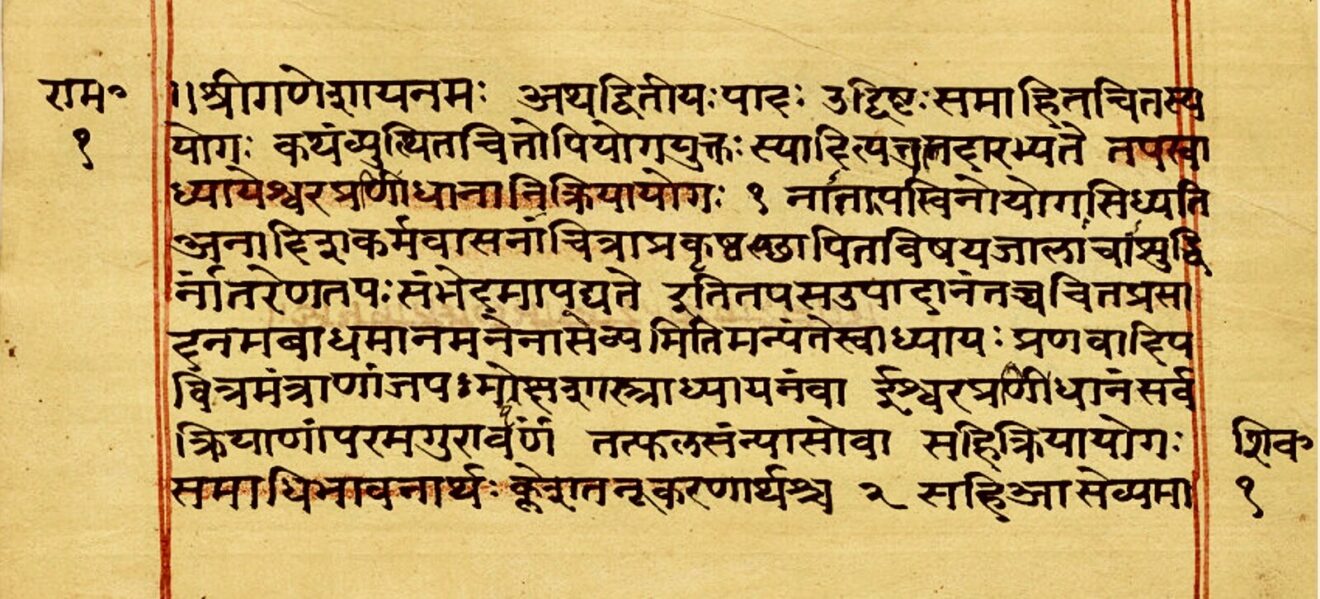 राम॰ ॥श्रीगणेशायनमः अथद्वितीयःपादः उद्दिष्टःसमाहितचितस्य
१ योगः कथंव्युत्थितचित्तोपियोगयुक्तः स्यादित्येतत्तदारभ्यते तपस्वा
ध्यायेश्वरप्रणिधानानिक्रियायोगः १ नातपस्विनोयोगःसिध्यति
अनादिकर्मवासनाचित्राप्रत्युपस्थापितविषयजालाचाशुद्धि
र्नांतरेणतपःसंभेदमापद्यते इतितपसउपादानंतच्चचितप्रसा
दनमबाधमानमनेनासेव्यमितिमन्यंतेस्वाध्यायः प्रणवादिप
वित्रमंत्राणांजपःमोक्षशास्त्राध्यायनंवा ईश्वरप्रणिधानंसर्व
क्रियाणांपरमगुरावर्पणं तत्फलसंन्यासोवा सहिक्रियायोगः शिव॰
समाधिभावनार्थः क्लेशतनूकरणार्थश्च २ सहिआसेव्यमा १